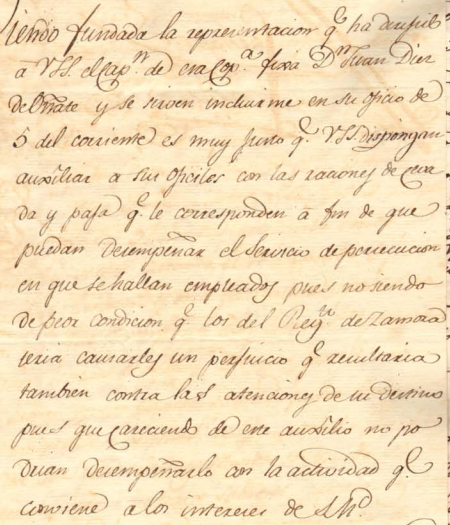 Siendo fundada la representacion q.e ha
a VSS. el Cap.n de esa Comp.a fixa D.n Juan Diez
de Oñate y se sirven incluirme en su oficio de
5 del corriente es muy justo q.e VSS dispongan
auxiliar a sus oficiles con las raciones de ceva
da y paja q.e le corresponden á fin de que
puedan desempeñar el servicio de persecucion
en que se hallan empleados pues no siendo
de peor condicion q.e los del Rey.to de Zamora
seria causarles un perjuicio q.e resultaria
tambien contra las atenciones de su destino
pues que careciendo de este auxilio no po
drian desempeñarlo con la actividad q.e
conviene a los intereses de